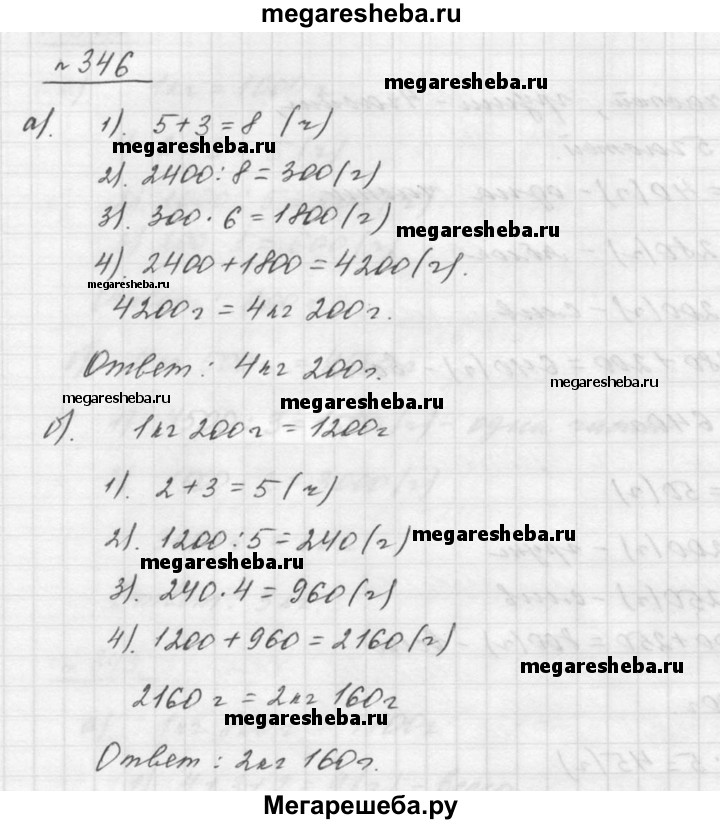 megaresheba.ru
№ 346
megaresheba.ru
а). 1). 5+3=8 (ч)
megaresheba.ru
2). 2400:8=300(г)
3). 300·6=1800(г)
megaresheba.ru
4). 2400+1800=4200(г).
megaresheba.ru
4200г = 4кг 200г.
Ответ: 4кг 200г.
megaresheba.ru
megaresheba.ru
megaresheba.ru
б). 1кг 200г =1200г
1). 2+3=5(ч)
2). 1200:5=240(г)
megaresheba.ru
megaresheba.ru
3). 240·4=960(г)
4). 1200+960=2160(г)
megaresheba.ru
2160 г = 2кг 160г
megaresheba.ru
Ответ: 2кг 160г.
Мегарешеба.ру